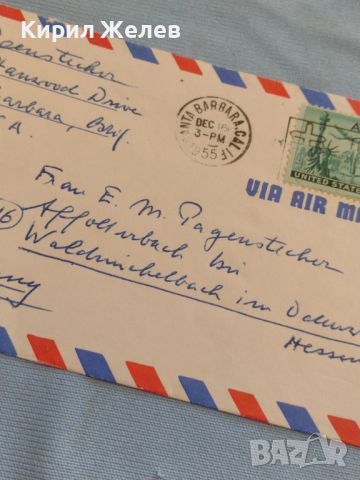 Кирил Желев
Pagenstecher
Drive
Barbara, Calif
SANTA BARBARA, CALIF
DEC 16
3-PM
1955
UNITED STATES
VIA AIR MA
Frau E. M. Pagenstecher
Affolterbach bei
Waldmichelbach im Odenw
Hessen
BAZAR